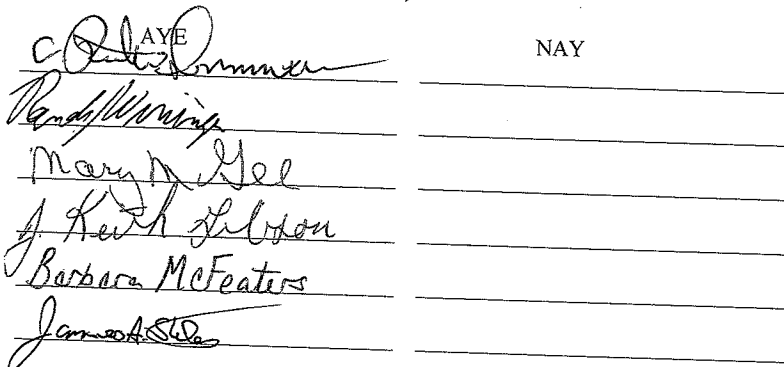 AYE NAY
C.
Randy Wininger
Mary McGee
J. Keith Gibson
Barbara McFeaters
James A.